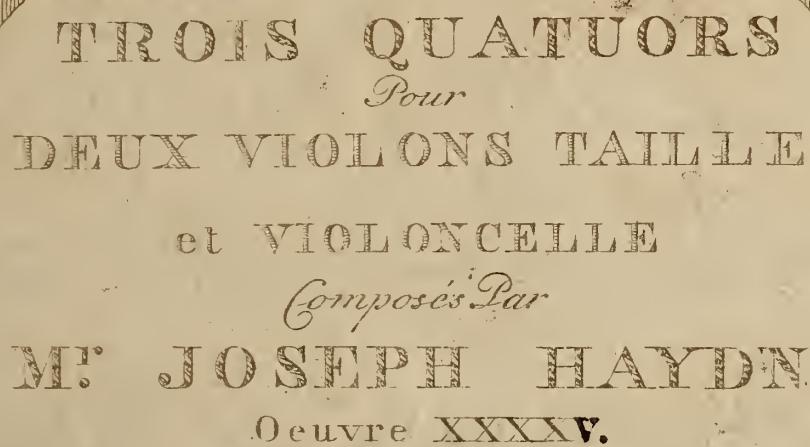 TROIS QUATUORS
Pour
DEUX VIOLONS TAILLE
et VIOLONCELLE
Composés Par
Mr. JOSEPH HAYDN
Oeuvre XXXXV.